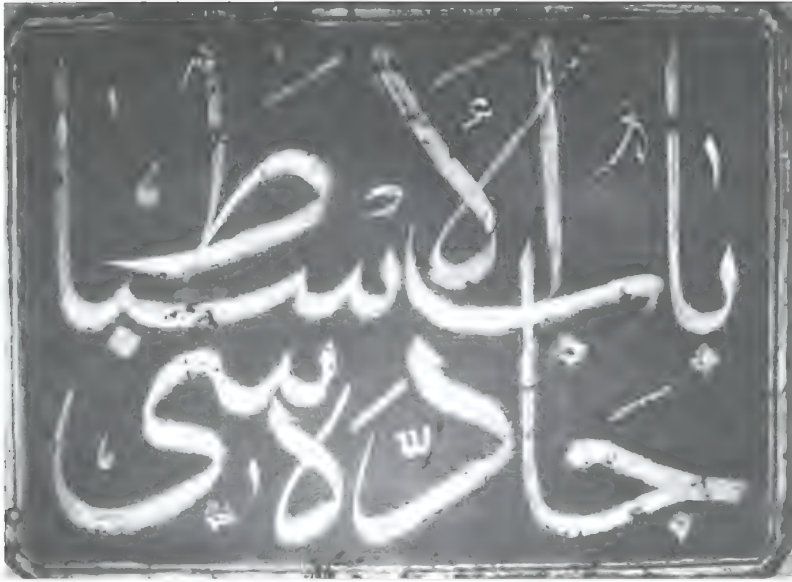 باب الاسباط
جادّه سی